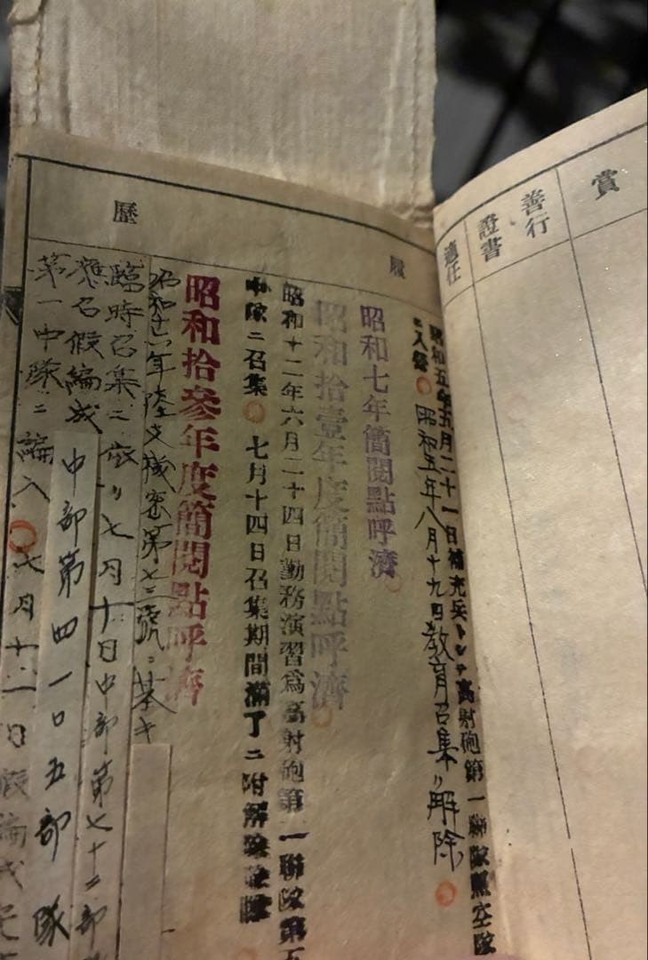 賞
善行
證書
適任
履歷
昭和五年五月二十一日補充兵トシテ高射砲第一聯隊照空隊
ニ入營 昭和五年八月十九日教育召集ヲ解除
昭和七年簡閲點呼濟
昭和拾壹年度簡閲點呼濟
昭和十二年六月二十四日勤務演習爲高射砲第一聯隊第五
中隊ニ召集 七月十四日召集期間滿了ニ附解除
昭和拾參年度簡閲點呼濟
昭和十六年陸支機密第七三號ニ基キ
臨時召集ニ依リ七月十日中部第七十二部
應召假編成
中部第四一〇五部隊
第一中隊ニ編入 七月十一日假編成完